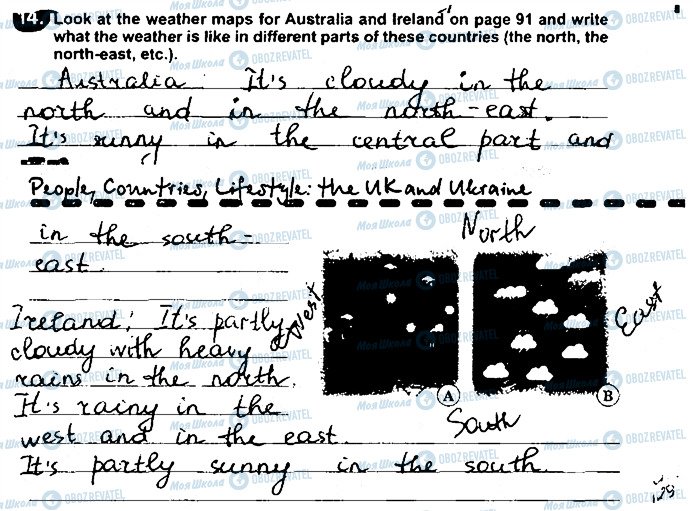 14. Look at the weather maps for Australia and Ireland on page 91 and write
what the weather is like in different parts of these countries (the north, the
north-east, etc.).
Australia It's cloudy in the
north and in the north-east.
It's sunny in the central part and
People, Countries, Lifestyle: the UK and Ukraine
in the south-
east.
North
West
East
Ireland: It's partly
cloudy with heavy
rains in the north.
A
B
It's rainy in the
South
west and in the east.
It's partly sunny in the south.
Моя Школа OBOZREVATEL